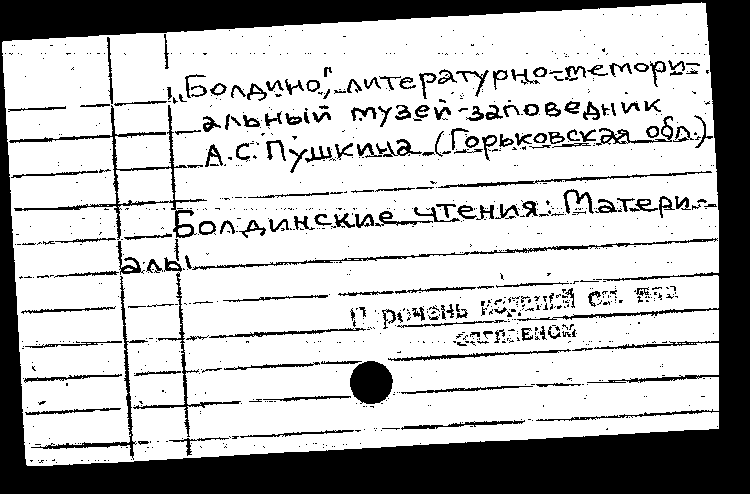 „Болдино", литературно-мемори-
альный музей-заповедник
А.С. Пушкина (Горьковская обл.)
Болдинские чтения: Матери-
алы
изданий см. под
заглавием